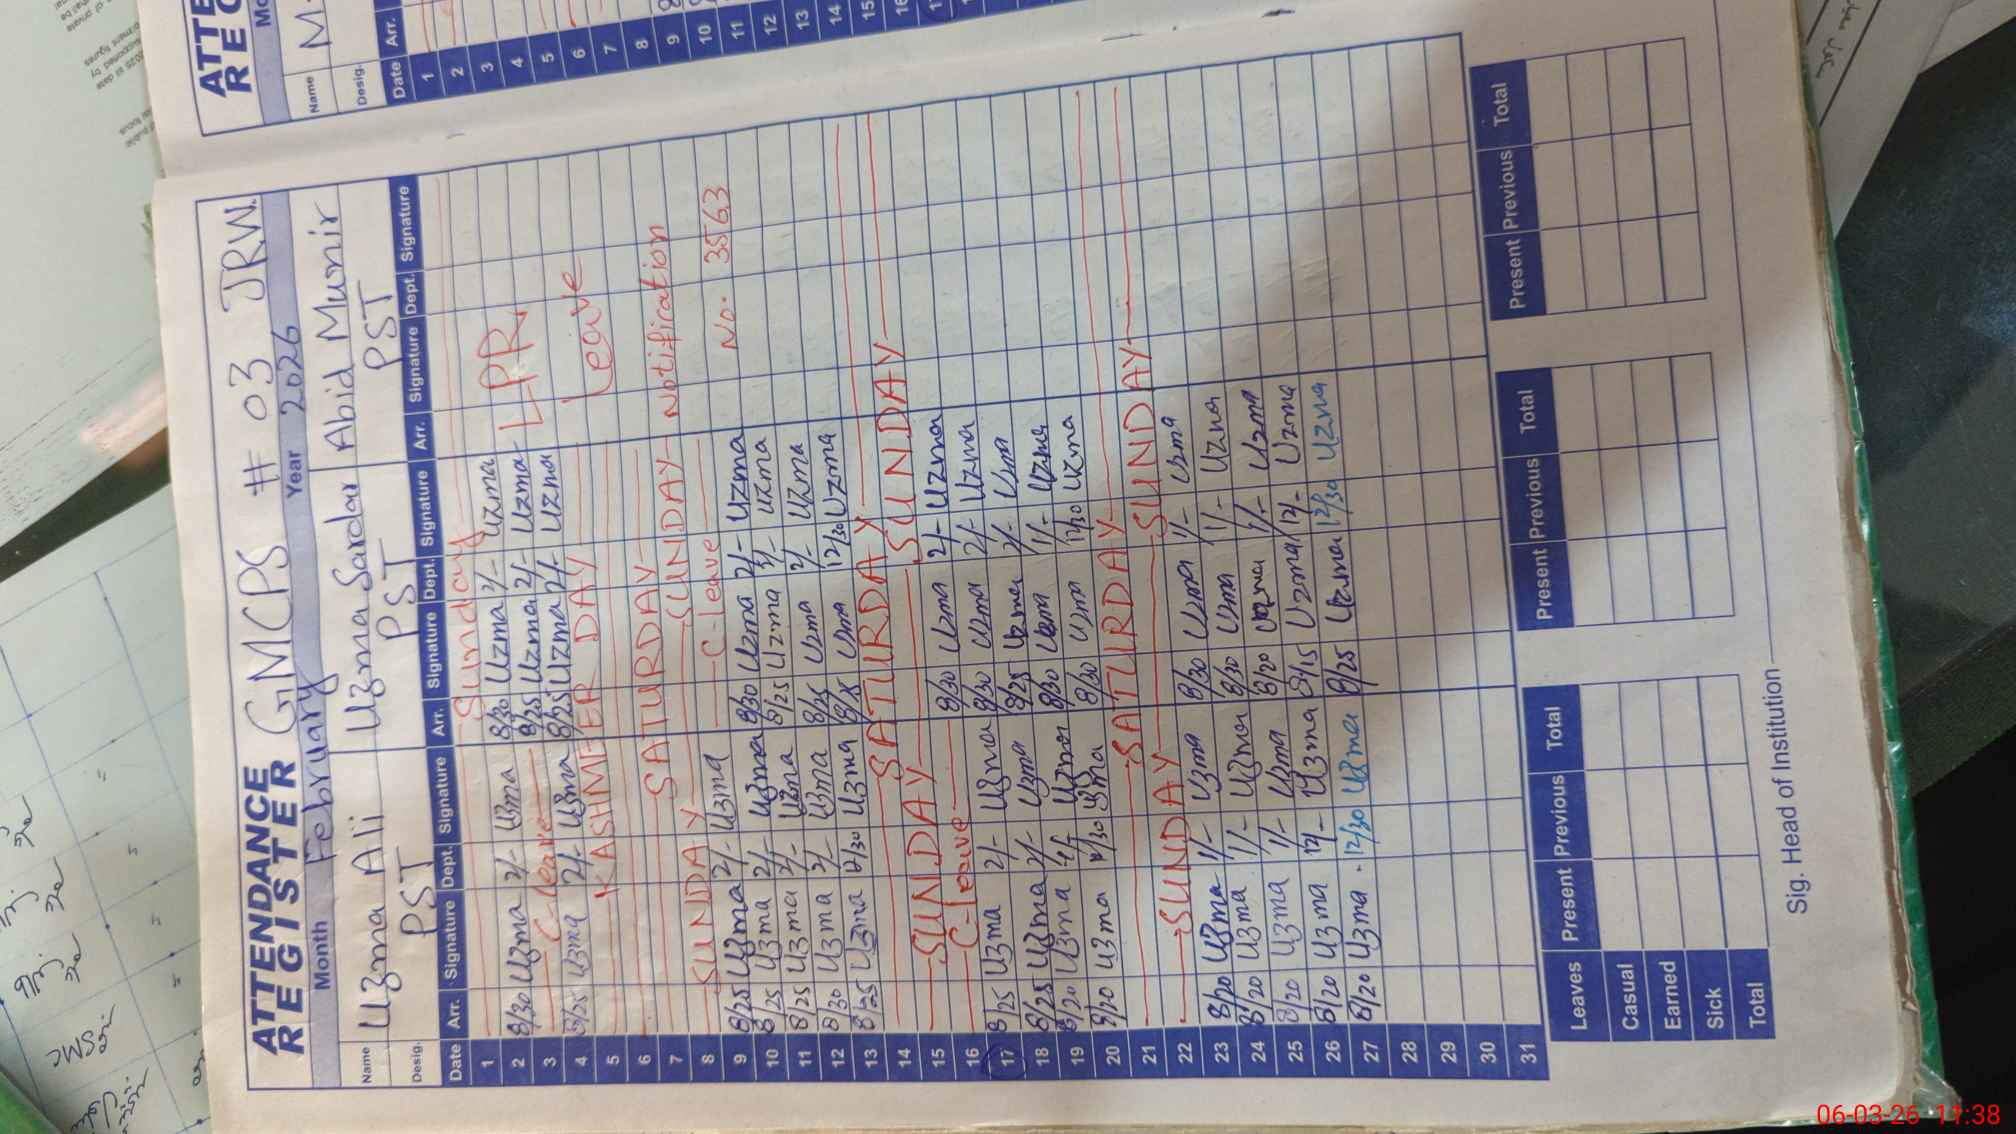 ATTENDANCE REGISTER GMCPS # 03 JRW.
Month February Year 2026
Name Uzma Ali Uzma Sardar Abid Munir
Desig. PST PST PST
Date Arr. Signature Dept. Signature Arr. Signature Dept. Signature Arr. Signature Dept. Signature
1 Sunday
2 8/30 Uzma 2/- Uzma 8/30 Uzma 2/- Uzma LPR
3 C-leave 8/25 Uzma 2/- Uzma
4 8/25 Uzma 2/- Uzma 8/25 Uzma 2/- Uzma Leave
5 KASHMEER DAY
6
7 SATURDAY Notification
8 SUNDAY SUNDAY
9 8/25 Uzma 2/- Uzma C-leave No. 3563
10 8/25 Uzma 2/- Uzma 8/30 Uzma 2/- Uzma
11 8/25 Uzma 2/- Uzma 8/25 Uzma 2/- Uzma
12 8/30 Uzma 2/- Uzma 8/25 Uzma 2/- Uzma
13 8/25 Uzma 12/30 Uzma 8/25 Uzma 12/30 Uzma
14 SATURDAY
15 SUNDAY SUNDAY
16 C-leave 8/30 Uzma 2/- Uzma
17 8/25 Uzma 2/- Uzma 8/30 Uzma 2/- Uzma
18 8/25 Uzma 2/- Uzma 8/25 Uzma 2/- Uzma
19 8/20 Uzma 1/- Uzma 8/30 Uzma 1/- Uzma
20 8/20 Uzma 12/30 Uzma 8/30 Uzma 12/30 Uzma
21 SATURDAY
22 SUNDAY SUNDAY
23 8/20 Uzma 1/- Uzma 8/30 Uzma 1/- Uzma
24 8/20 Uzma 1/- Uzma 8/30 Uzma 1/- Uzma
25 8/20 Uzma 1/- Uzma 8/20 Uzma 1/- Uzma
26 8/20 Uzma 12/- Uzma 8/15 Uzma 12/- Uzma
27 8/20 Uzma 12/30 Uzma 8/25 Uzma 12/30 Uzma
28
29
30
31
Leaves Present Previous Total Present Previous Total Present Previous Total
Casual
Earned
Sick
Total
Sig. Head of Institution
ATTE
REC
Mo
Name M.
Desig.
Date Arr.
1
2
3
4
5
6
7
8
9
10
11
12
13
14
15
06-03-26 11:38